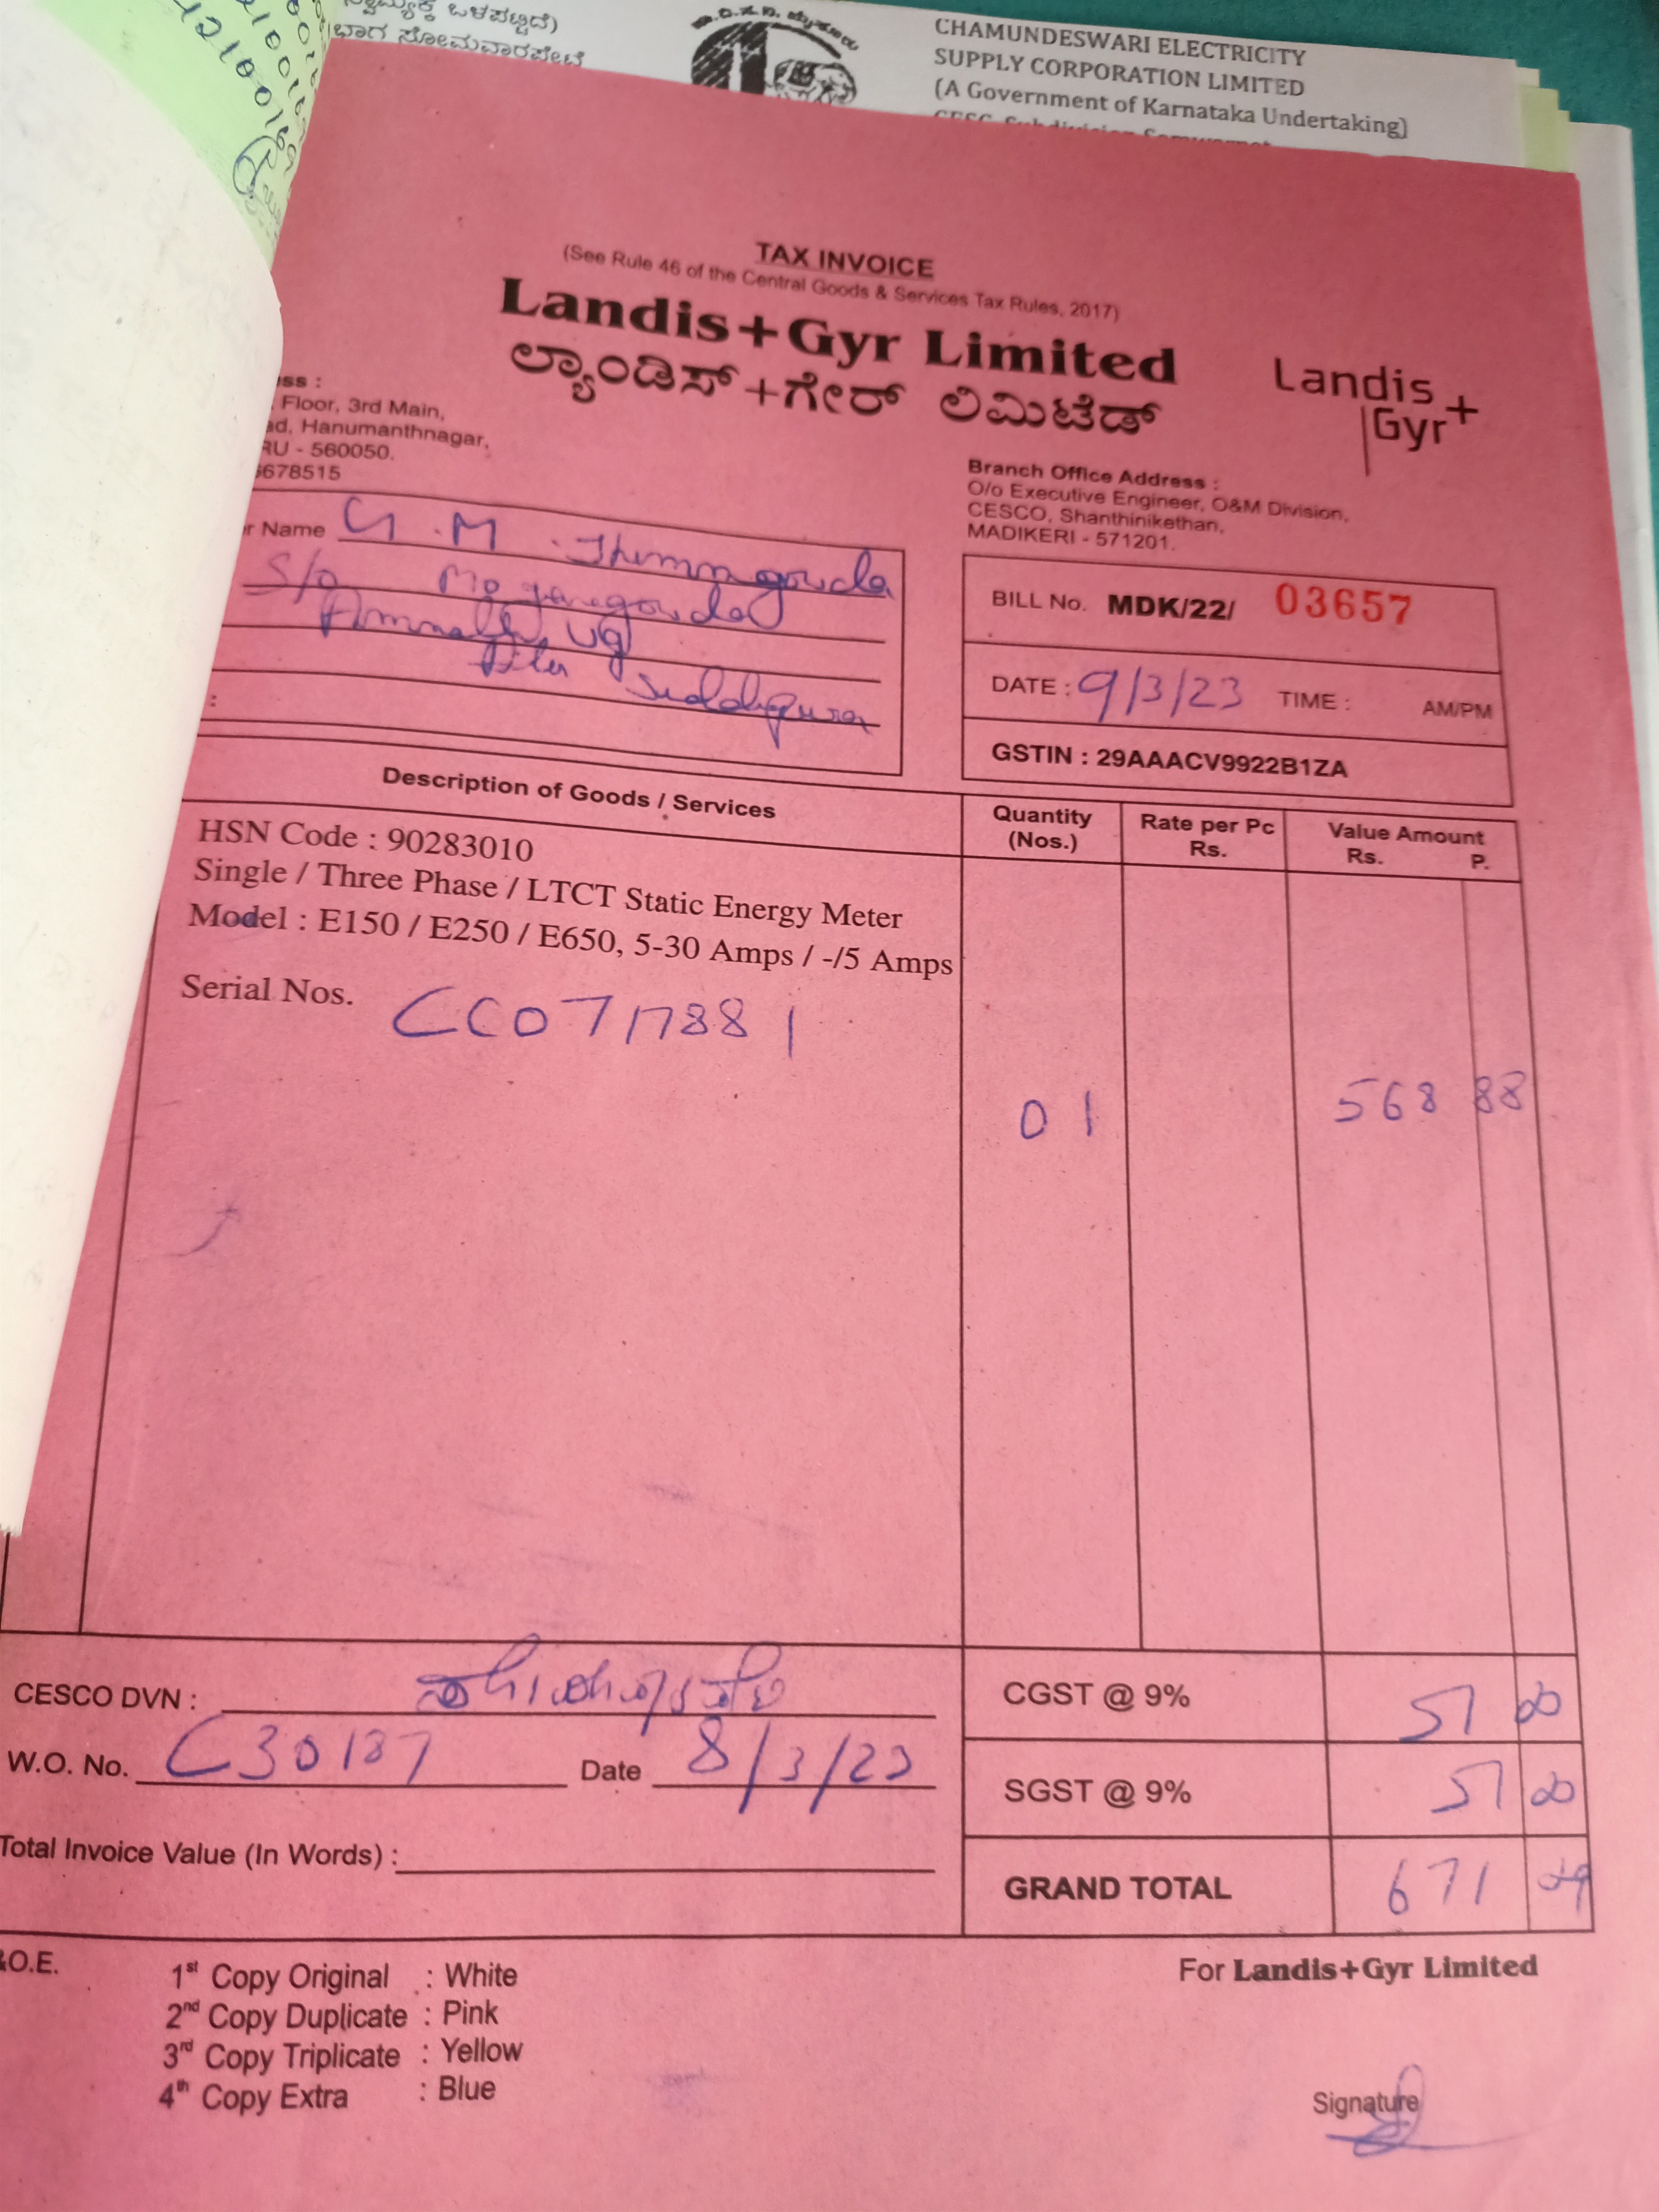 ಒಳಪಟ್ಟಿದೆ)
ಸೋಮವಾರಪೇಟೆ
CHAMUNDESWARI ELECTRICITY
SUPPLY CORPORATION LIMITED
(A Government of Karnataka Undertaking)
TAX INVOICE
(See Rule 46 of the Central Goods & Services Tax Rules, 2017)
Landis+Gyr Limited
ಲ್ಯಾಂಡಿಸ್+ಗೇರ್ ಲಿಮಿಟೆಡ್
Landis+
Gyr+
ss :
Floor, 3rd Main,
ad, Hanumanthnagar,
RU - 560050.
678515
Branch Office Address :
O/o Executive Engineer, O&M Division,
CESCO, Shanthinikethan,
MADIKERI - 571201.
r Name G.M. Thimmgowda
S/o
:
BILL No. MDK/22/ 03657
DATE : 9/3/23 TIME : AM/PM
GSTIN : 29AAACV9922B1ZA
Description of Goods / Services
Quantity (Nos.)
Rate per Pc Rs.
Value Amount Rs. P.
HSN Code : 90283010
Single / Three Phase / LTCT Static Energy Meter
Model : E150 / E250 / E650, 5-30 Amps / -/5 Amps
Serial Nos. CC0717881
01 568 88
CESCO DVN :
W.O. No. C30187 Date 8/3/23
Total Invoice Value (In Words) :
CGST @ 9% 51 20
SGST @ 9% 51 20
GRAND TOTAL 671
&O.E.
1st Copy Original : White
2nd Copy Duplicate : Pink
3rd Copy Triplicate : Yellow
4th Copy Extra : Blue
For Landis+Gyr Limited
Signature